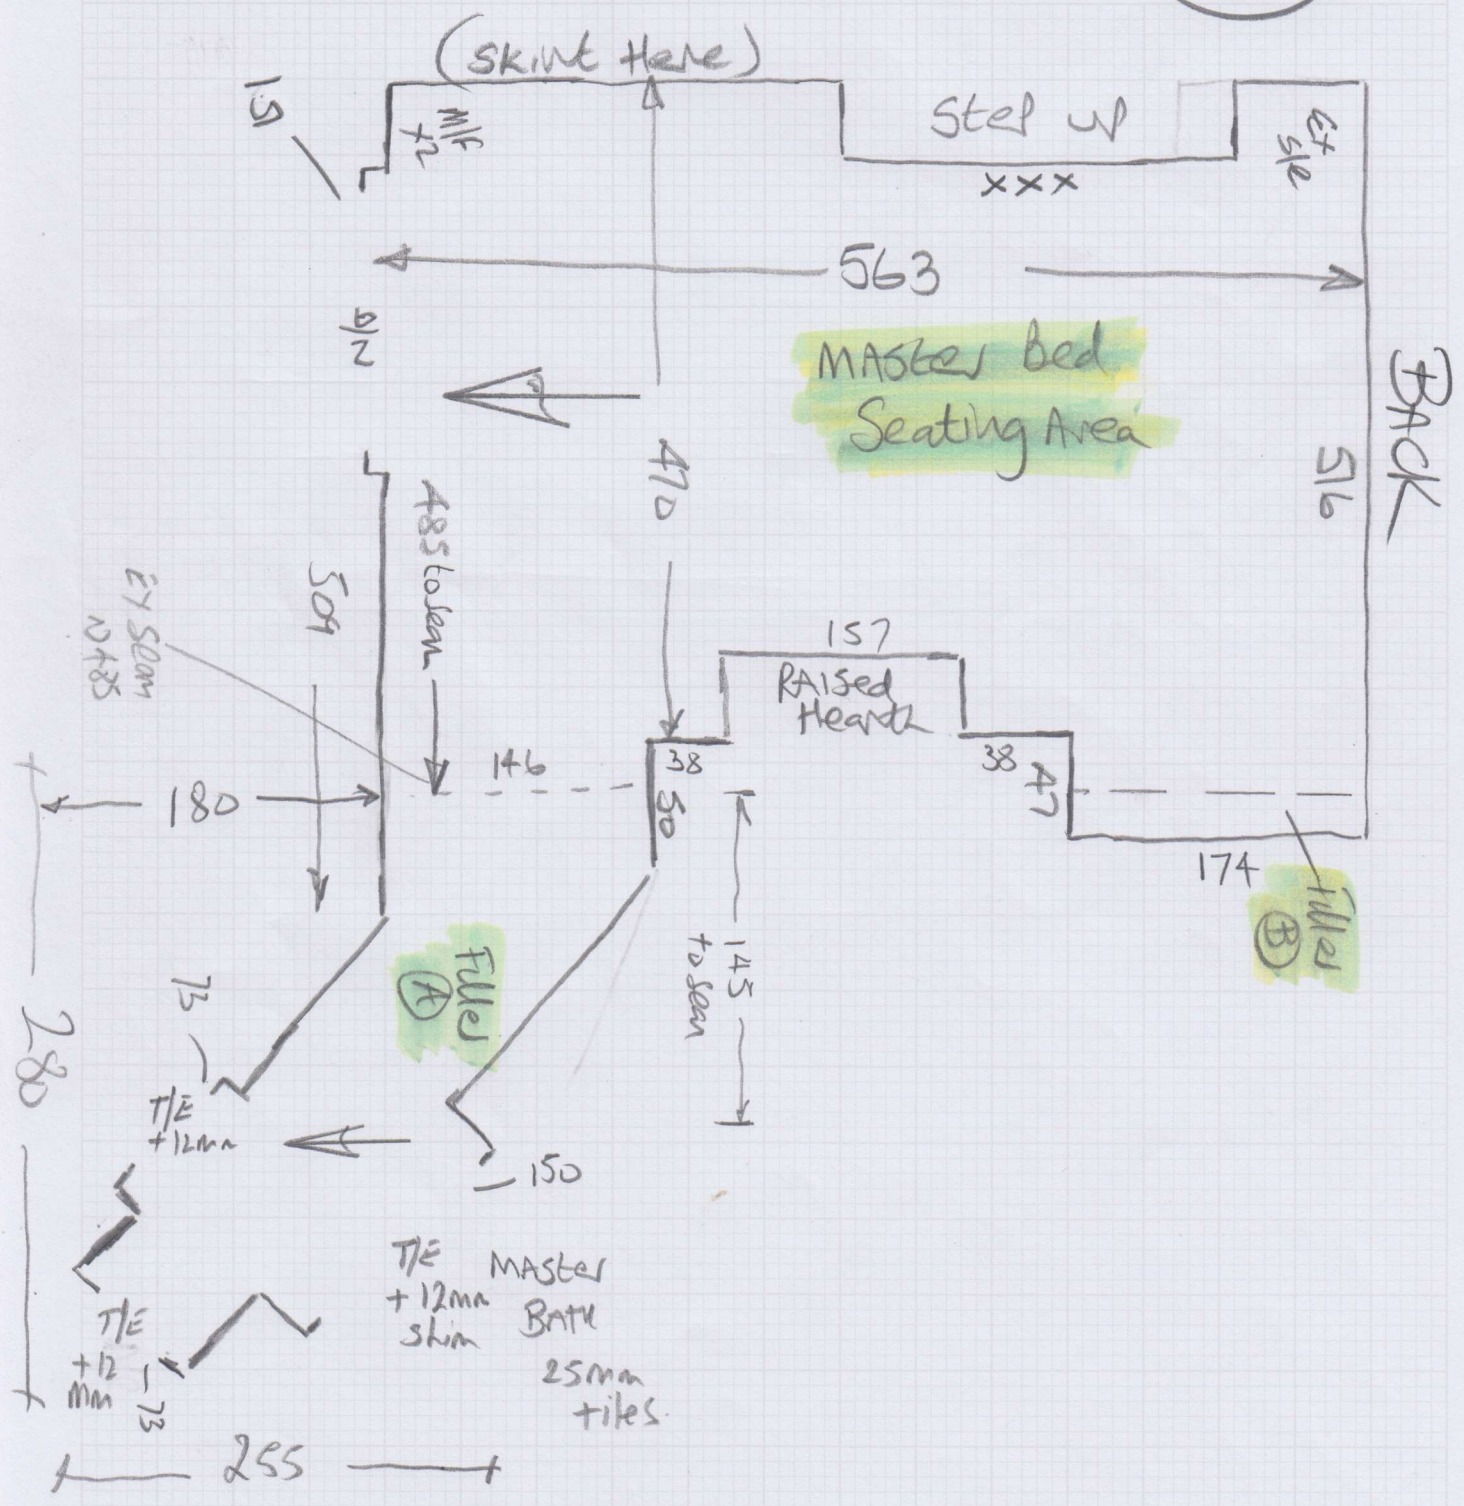 (Skirt Here)
151
M/F
x2
Step up
xxx
Ex
S/R
563
MASter Bed
Seating Area
BACK
516
470
485 to seam
509
Ex Seam
180
146
157
RAISed
Hearth
38
50
38
47
174
Filler
B
145
to seam
Filler
A
73
280
T/E
+12mm
150
T/E
+12mm
shim
MASter
BATH
25mm
tiles.
T/E
+12
mm
73
255